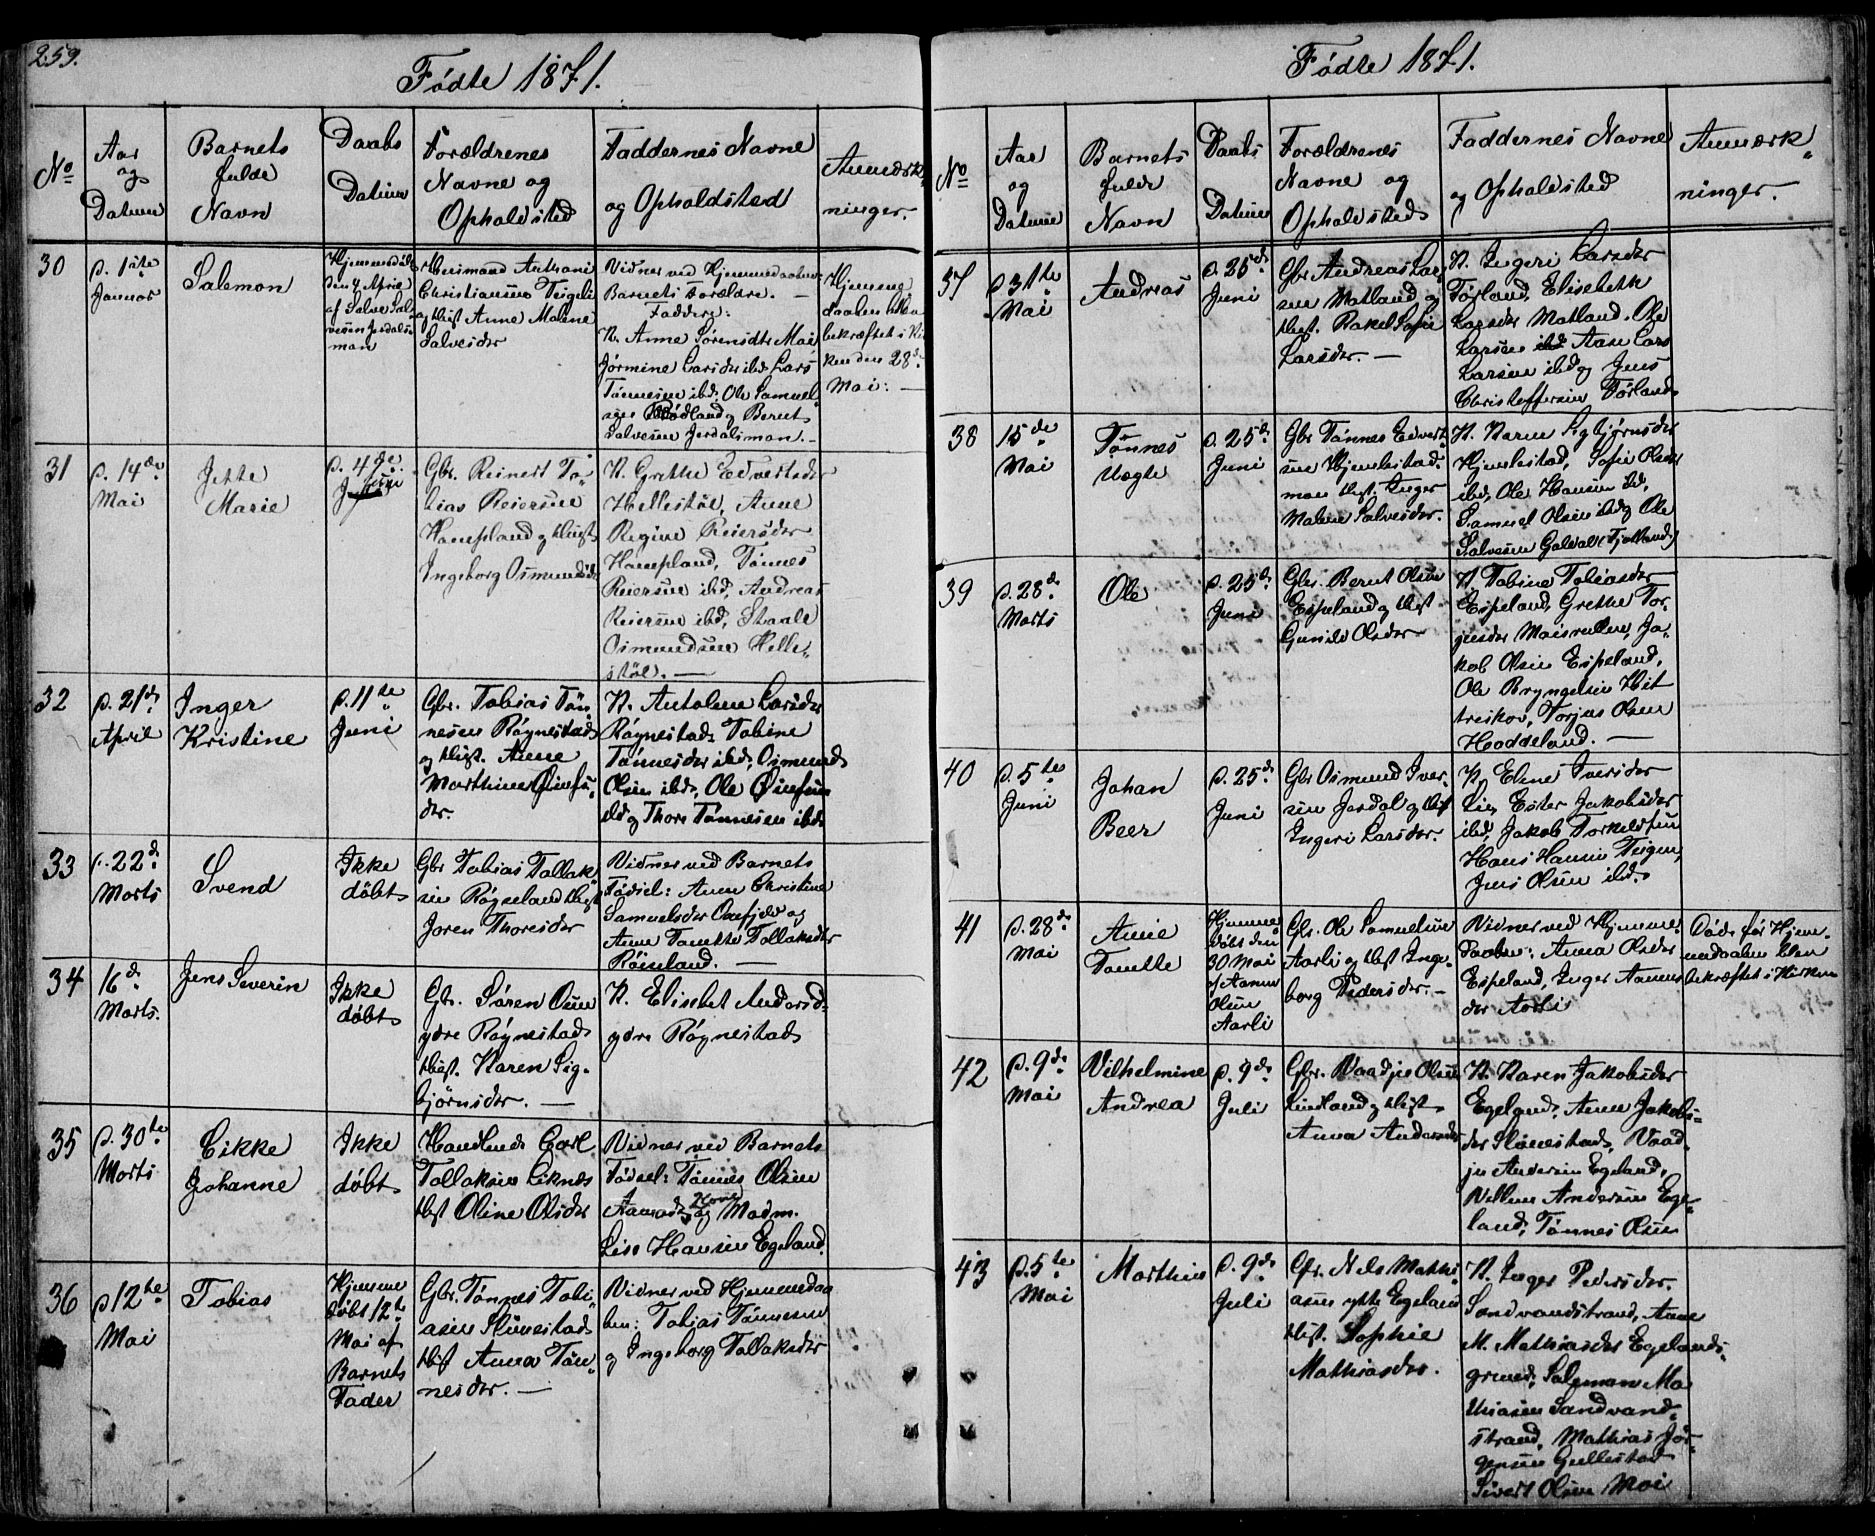 259.
Fødte 1871.
No
Aar
og
Datum
Barnets
fulde
Navn
Daabs
Datum
Forældrenes
Navne og
Opholdsted
Faddernes Navne
og Opholdsted
Anmærk
ninger.
30
d. 1ste
Januar
Salemon
Hjemmedøbt
den 4 April
af Salve Sal
vesen Jerdals
man
Huusmand Anthoni
Christiansen Teigeli
og Hust Anne Malene
Salvesdr
Vidner ved Hjemmedaaben
Barnets Forældre. —
Faddere:
K. Anne Sørensdtr Moi
Jørmine Larsdtr ibd, Lars
Tønnesen ibd, Ole Samuel
sen Rødland og Bernt
Salvesen Jerdalsman. —
Hjemme
daaben blev
bekræftet i Kir
ken den 28de
Mai: —
31
d. 14de
Mai
Jette
Marie
d. 4de
Juni
Gbr. Reinert To
bias Reiersen
Hampland og Hust
Ingeborg Osmundsdr
K. Grethe Edvertsdr
Hellestøl, Anne
Regine Reiersdr
Hampland, Tønnes
Reiersen ibd, Andreas
Reiersen ibd, Staale
Osmundsen Helle
støl. —
32
d. 21de
April
Inger
Kristine
d. 11te
Juni
Gbr. Tobias Tøn
nesen Røynestad
og Hust. Anne
Marthine Øinfs
dr.
K. Antoline Larsdr
Røynestad, Tobine
Tønnesdr ibd, Osmund
Olsen ibd, Ole Øinfsen
ibd og Thore Tønnesen ibd
33
d. 22de
Marts
Svend
Ikke
døbt
Gbr Tobias Tollak
sen Røyseland Hust
Joren Thoresdr
Vidner ved Barnets
Fødsel: Anne Christine
Samuelsdr Omfjeld og
Anne Tonette Tollaksdr
Røiseland. —
34
16de
Marts.
Jens Severin
Ikke
døbt
Gbr. Søren Osen
ydre Røynestad
Hust. Karen Sig
bjørnsdr. —
K. Elisbet Andersd
ydre Røynestad
35
d. 30te
Marts
Cikke
Johanne
Ikke
døbt
Handlende Carl
Tollaksen Liknes
Hust Oline Olsdr
Vidner ved Barnets
Fødsel: Tønnes Olsen
Aamodt og Madm.
Lise Hansen Egeland.
36
d 12te
Mai
Tobias
Hjemme
døbt 12te
Mai af
Barnets
Fader
Gbr. Tønnes Tobi
asen Slimestad
Hust Anna Tøn
nesdr. —
Vidner ved Hjemmedaa
ben: Tobias Tønnesen
og Ingeborg Tollaksdr
Fødte 1871.
No
Aar
og
Datum
Barnets
fulde
Navn
Daabs
Datum
Forældrenes
Navne og
Opholdsted
Faddernes Navne
og Opholdsted
Anmærk
ninger.
37
d 31te
Mai
Andreas
d. 25de
Juni
Gbr Andreas Lar
sen Matland og
Hust. Rakel Sofie
Larsdr. —
K. Ingeri Larsdr
Førland, Elisebeth
Larsdr Matland, Ole
Larsen ibd Aase Lars
Larsen ibd og Jens
Christoffersen Førland
38
15de
Mai
Tønnes
Uegte
d. 25de
Juni
Gbr Tønnes Edvert
sen Hjemlestad
man Hust. Inger
Malene Salvesdr.
K. Karen Sigbjørnsdr
Hjemlestad, Sofie Olsdr
ibd, Ole Hansen ibd,
Samuel Olsen ibd og Ole
Salvesen Galdal (Fjotland)
39
d. 28de
Marts
Ole
d. 25de
Juni
Gbr. Bernt Olsen
Espeland og Hust
Gunild Olsdr
K Tobine Tobiasdr
Espeland, Grethe Tor
jusdr Moisvellen, Ja
kob Olsen Espeland,
Ole Bryngelsen Hit
treskov, Torjus Olsen
Hoddeland. —
40
d. 5te
Juni
Johan
Beer
d. 25de
Juni
Gbr Osmund Iver
sen Jerdal og Hust
Ingeri Larsdr.
K. Eline Iversdr
Li, Ester Jakobsdr
ibd, Jakob Torkelsen
Hans Hansen Teigen,
Jens Olsen ibd.
41
d. 28de
Mai
Anne
Tonette
Hjemme
døbt den
30 Mai
af Aamen
Olsen
Aarli
Gbr. Ole Samuelsen
Aarli og Hust Inge
borg Pedersdr. —
Vidner ved Hjemme
daaben: Anna Olsdr
Espeland, Inger Aamens
dr Aarli
Døde før Hjem
medaaben blev
bekræftet i Kirken
42
d. 9de
Mai
Vilhelmine
Andrea
d. 9de
Juli
Gbr. Vaadjie Olsen
Lindland og Hust
Anna Andersdr
K. Karen Jakobsdr
Egeland, Anne Jakobs
dr Slimestad, Vaad
je Andersen Egeland,
Villum Andersen Ege
land, Tønnes Olsen
43
d. 5te
Mai
Marthin
d. 9de
Juli
Gbr. Nels Mathi
asen ytte Egeland
Hust. Sophie
Mathiasdr.
K. Inger Pedersdr
Sandvandstrand, Anne
M. Mathiasdr Egelands
grend, Salemon Ma
thiasen Sandvand
strand, Mathias Jør
gensen Gullestad
Sivert Olsen Moi